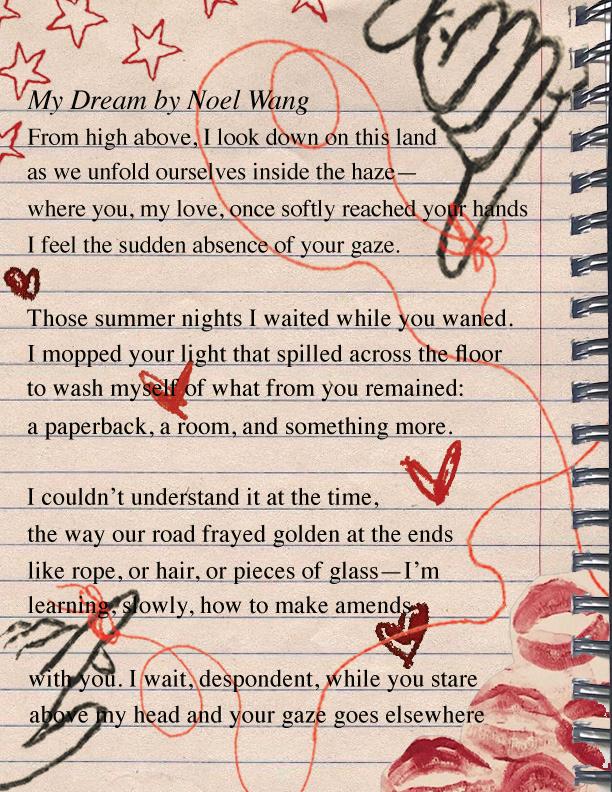 My Dream by Noel Wang
From high above, I look down on this land
as we unfold ourselves inside the haze—
where you, my love, once softly reached your hands
I feel the sudden absence of your gaze.
Those summer nights I waited while you waned.
I mopped your light that spilled across the floor
to wash myself of what from you remained:
a paperback, a room, and something more.
I couldn’t understand it at the time,
the way our road frayed golden at the ends
like rope, or hair, or pieces of glass—I’m
learning, slowly, how to make amends
with you. I wait, despondent, while you stare
above my head and your gaze goes elsewhere